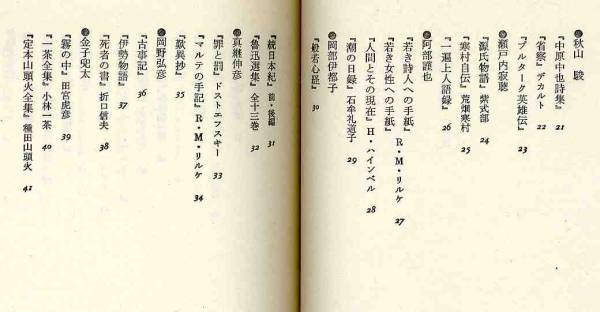 秋山 駿
『中原中也詩集』 21
『省察』デカルト 22
『プルターク英雄伝』 23
瀬戸内寂聴
『源氏物語』紫式部 24
『寒村自伝』荒畑寒村 25
『一遍上人語録』 26
阿部謹也
『若き詩人への手紙』
『若き女性への手紙』R・M・リルケ 27
『人間とその現在』H・ハインペル 28
『潮の日録』石牟礼道子 29
岡部伊都子
『般若心経』 30
『続日本紀』前・後編 31
『魯迅選集』全十三巻 32
真継伸彦
『罪と罰』ドストエフスキー 33
『マルテの手記』R・M・リルケ 34
『歎異抄』 35
岡野弘彦
『古事記』 36
『伊勢物語』 37
『死者の書』折口信夫 38
金子兜太
『霧の中』田宮虎彦 39
『一茶全集』小林一茶 40
『定本山頭火全集』種田山頭火 41